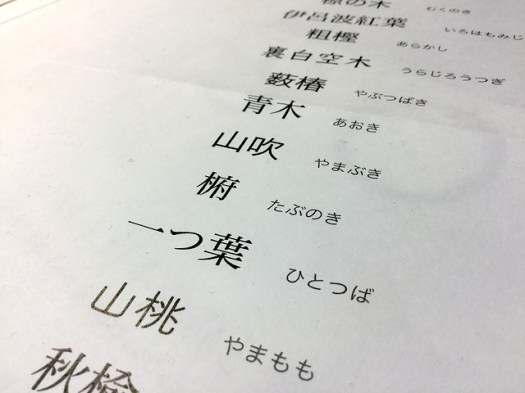 の木 むくのき
伊呂波紅葉 いろはもみじ
粗樫 あらかし
裏白空木 うらじろうつぎ
薮椿 やぶつばき
青木 あおき
山吹 やまぶき
椨 たぶのき
一つ葉 ひとつば
山桃 やまもも
秋楡